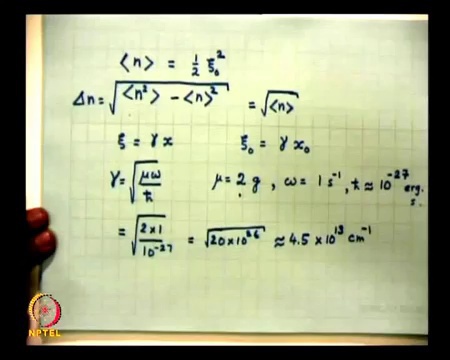 ⟨n⟩ = 1/2 ξ₀²
Δn = √(⟨n²⟩ - ⟨n⟩²) = √⟨n⟩
ξ = γx ξ₀ = γx₀
γ = √(μω/ħ) μ = 2 g, ω = 1 s⁻¹, ħ ≈ 10⁻²⁷ erg. s.
= √(2×1/10⁻²⁷) = √(20×10²⁶) ≈ 4.5 × 10¹³ cm⁻¹
NPTEL